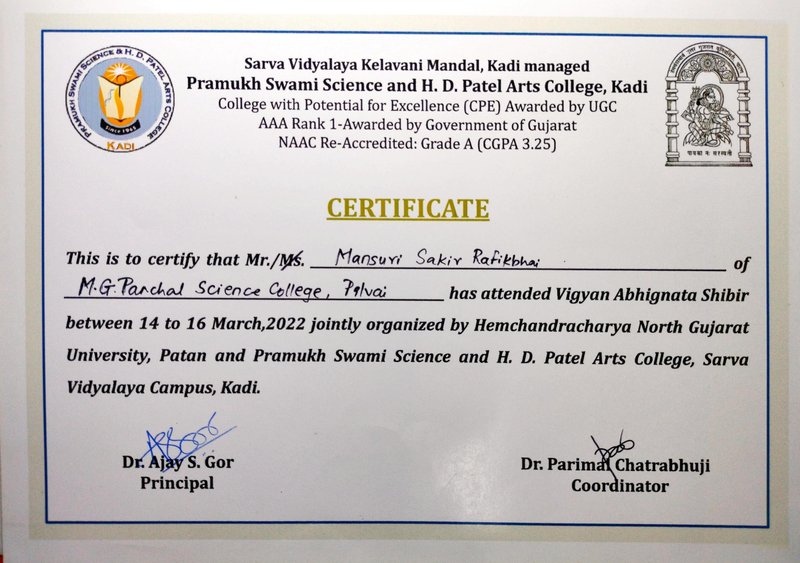 PRAMUKH SWAMI SCIENCE & H. D. PATEL ARTS COLLEGE
Since 1965
KADI
Sarva Vidyalaya Kelavani Mandal, Kadi managed
Pramukh Swami Science and H. D. Patel Arts College, Kadi
College with Potential for Excellence (CPE) Awarded by UGC
AAA Rank 1-Awarded by Government of Gujarat
NAAC Re-Accredited: Grade A (CGPA 3.25)
CERTIFICATE
This is to certify that Mr./Ms. Mansuri Sakir Rafikbhai of
M.G. Panchal Science College, Pilvai has attended Vigyan Abhignata Shibir
between 14 to 16 March,2022 jointly organized by Hemchandracharya North Gujarat
University, Patan and Pramukh Swami Science and H. D. Patel Arts College, Sarva
Vidyalaya Campus, Kadi.
Dr. Ajay S. Gor
Principal
Dr. Parimal Chatrabhuji
Coordinator